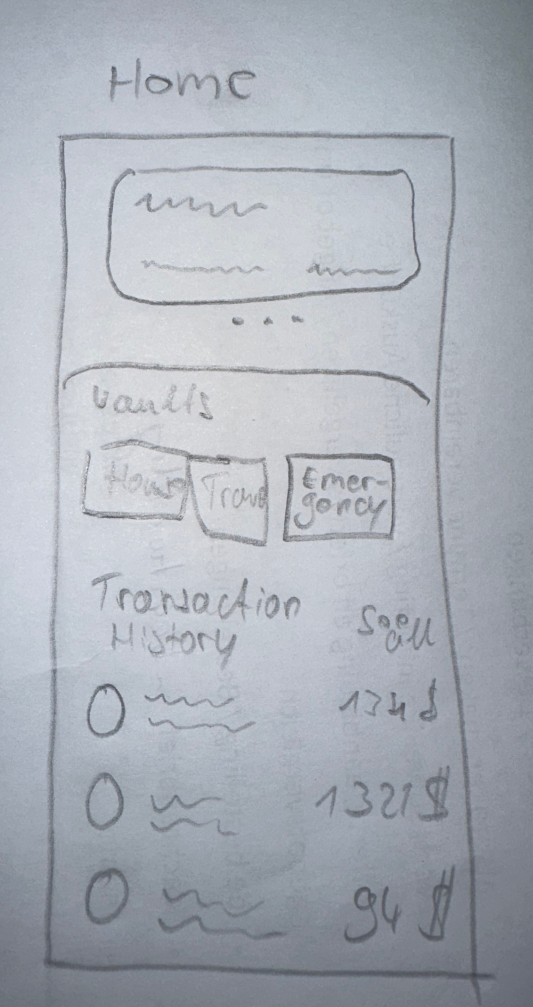 Home
Vaults
House Trave Emer-
gency
Transaction
History See all
134 $
1321 $
94 $